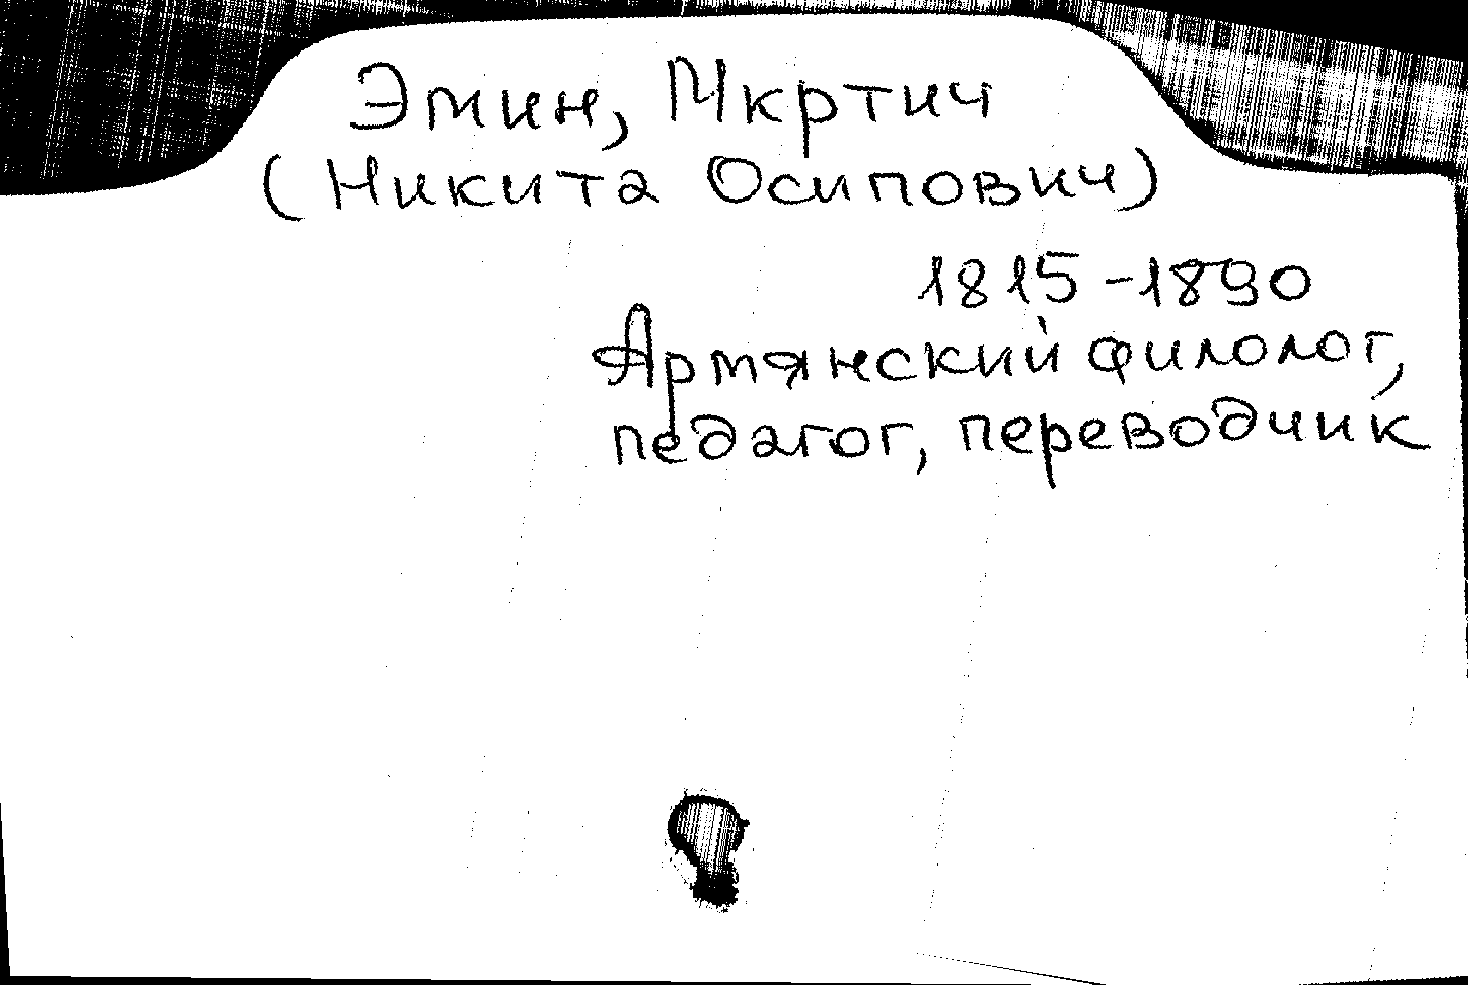 Эмин, Мкртич
(Никита Осипович)
1815-1890
Армянский филолог,
педагог, переводчик